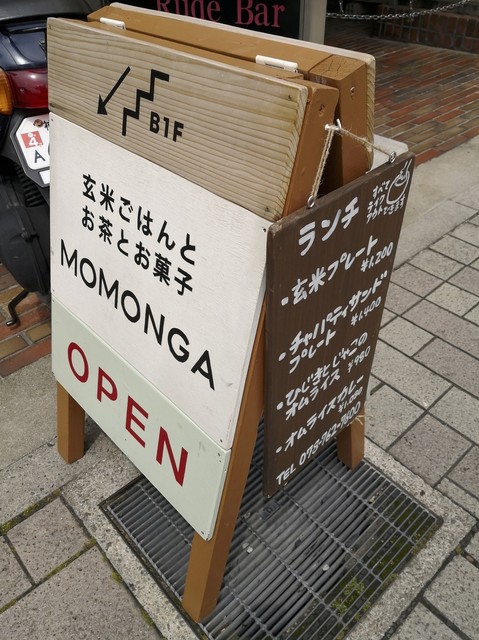 Rude Bar
B1F
玄米ごはんと
お茶とお菓子
MOMONGA
OPEN
ランチ
すべて
テイク
アウトできます
・玄米プレート
¥1,200
・チャパティサンド
プレート ¥1,400
・ひじきといゃこの
オムライス ¥980
・オムライスカレー
¥1,080
TEL 078-762-7600
A